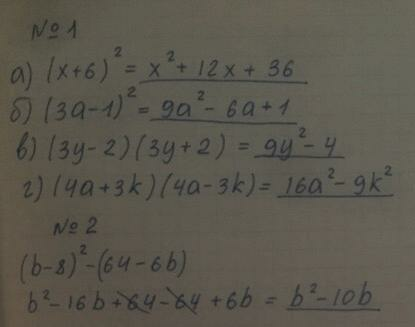 №1
а) (x+6)² = x² + 12x + 36
б) (3a-1)² = 9a² - 6a + 1
в) (3y-2)(3y+2) = 9y² - 4
г) (4a+3k)(4a-3k) = 16a² - 9k²
№2
(b-8)² - (64-6b)
b² - 16b + 64 - 64 + 6b = b² - 10b